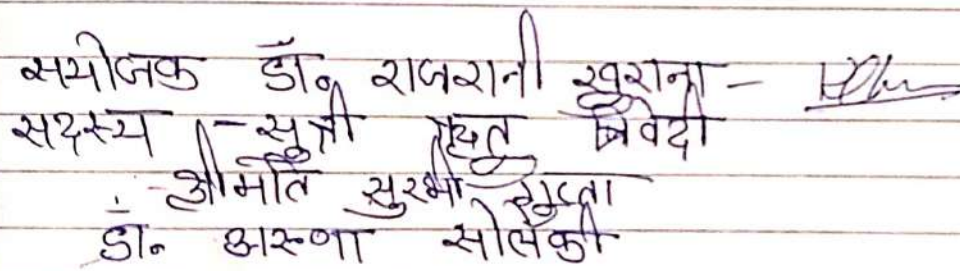 सयोजक डॉ० राजरानी खुराना -
सदस्य - सुश्री त्रिवेदी
- श्रीमति सुरभी गुप्ता
डॉ० अरूणा सोलंकी